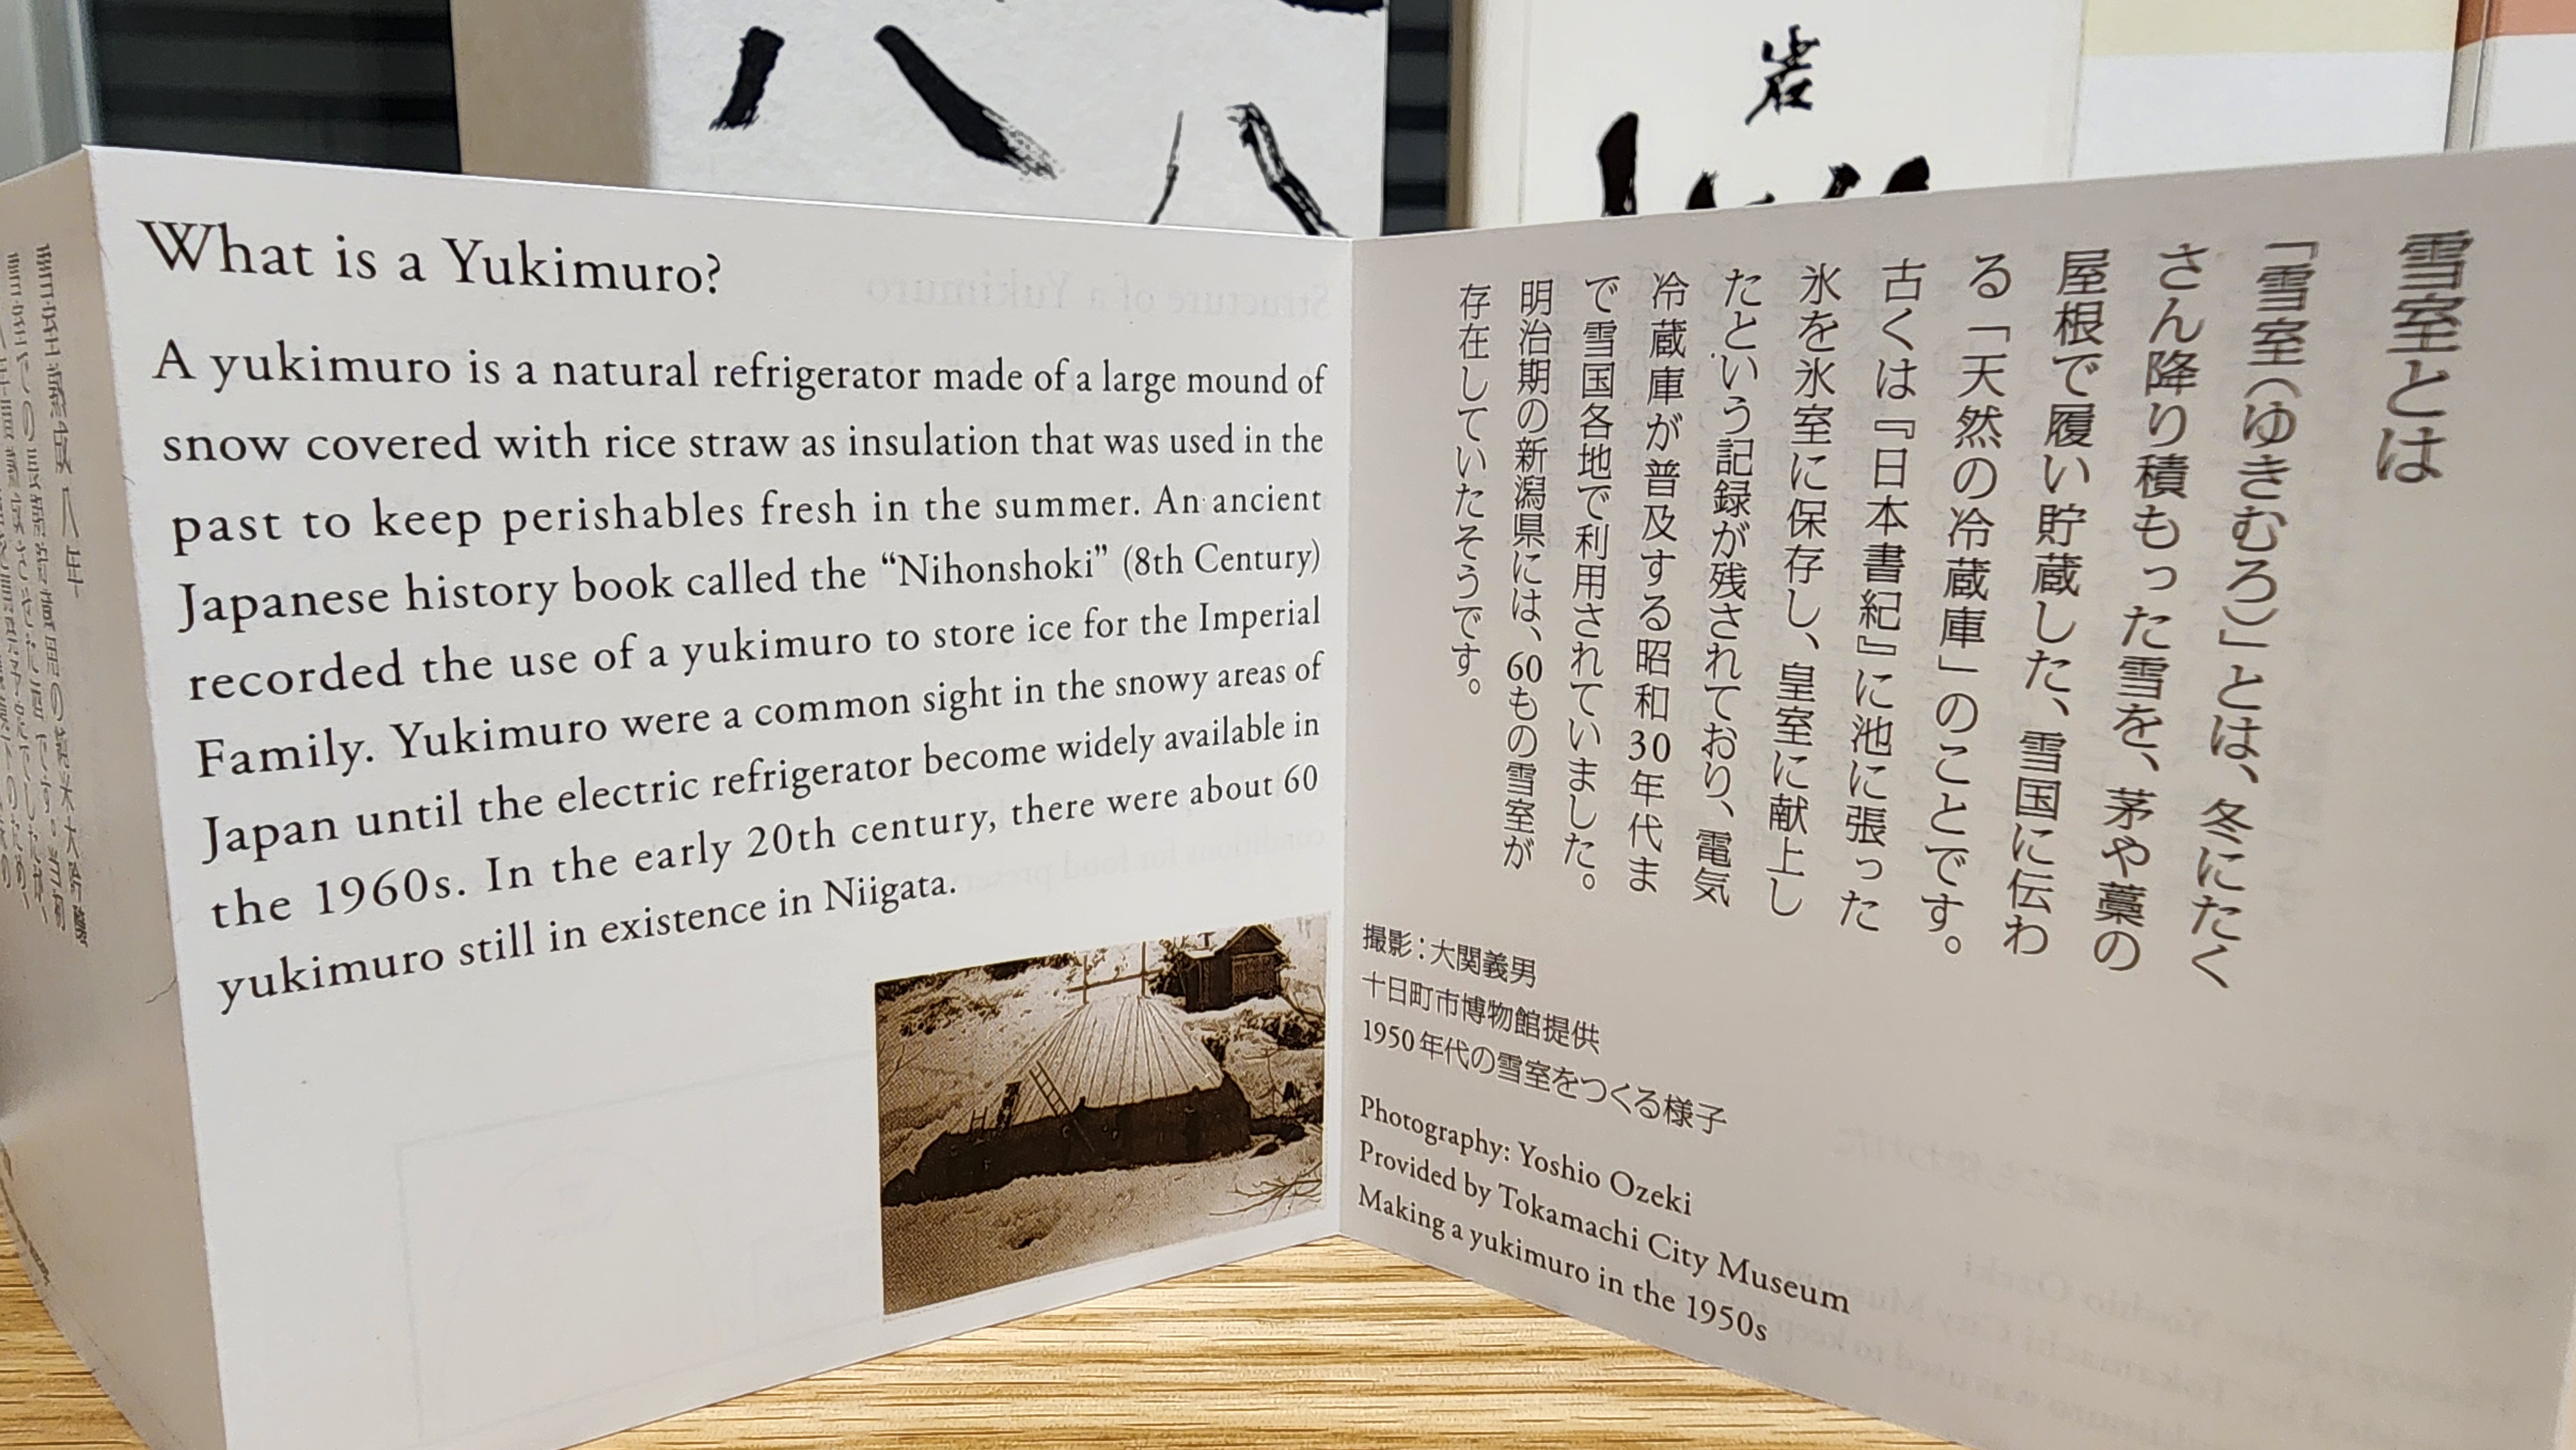 岩
What is a Yukimuro?
A yukimuro is a natural refrigerator made of a large mound of
snow covered with rice straw as insulation that was used in the
past to keep perishables fresh in the summer. An ancient
Japanese history book called the “Nihonshoki” (8th Century)
recorded the use of a yukimuro to store ice for the Imperial
Family. Yukimuro were a common sight in the snowy areas of
Japan until the electric refrigerator become widely available in
the 1960s. In the early 20th century, there were about 60
yukimuro still in existence in Niigata.
雪室とは
「雪室（ゆきむろ）」とは、冬にたく
さん降り積もった雪を、茅や藁の
屋根で履い貯蔵した、雪国に伝わ
る「天然の冷蔵庫」のことです。
古くは『日本書紀』に池に張った
氷を氷室に保存し、皇室に献上し
たという記録が残されており、電気
冷蔵庫が普及する昭和30年代ま
で雪国各地で利用されていました。
明治期の新潟県には、60もの雪室が
存在していたそうです。
撮影：大関義男
十日町市博物館提供
1950年代の雪室をつくる様子
Photography: Yoshio Ozeki
Provided by Tokamachi City Museum
Making a yukimuro in the 1950s